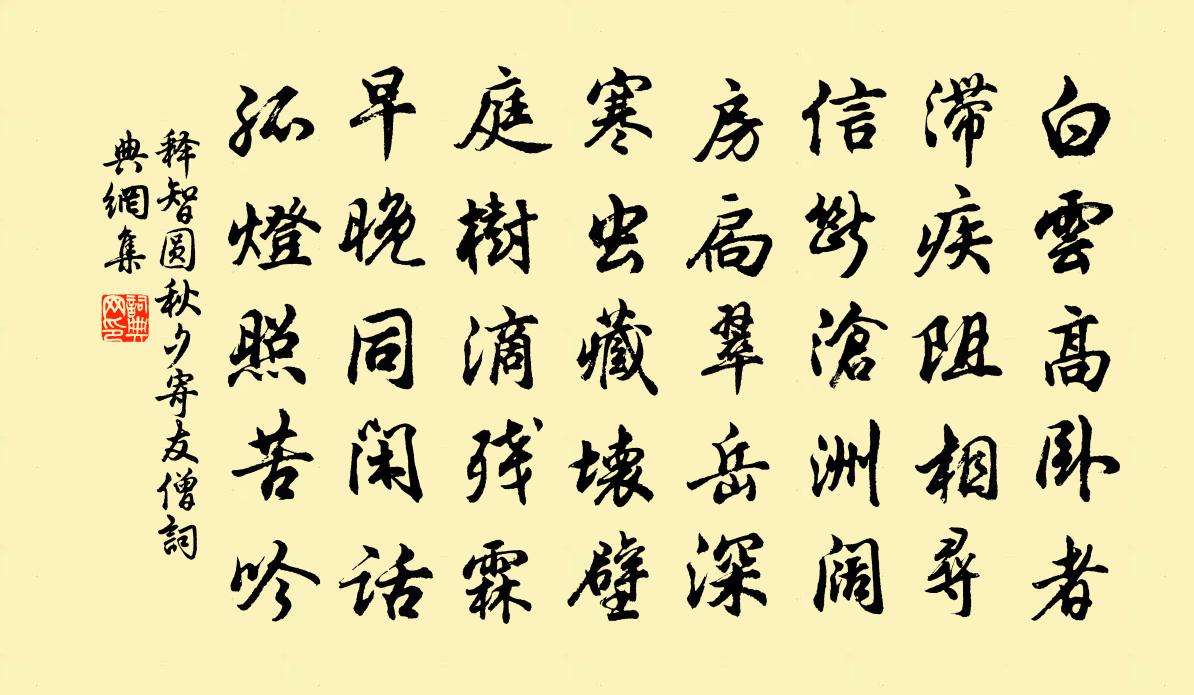 白雲高卧者
滞疾阻相尋
信斷滄洲闊
房扃翠岳深
寒虫藏壞壁
庭樹滴殘霖
早晚同閑話
孤燈照苦吟
释智圆秋夕寄友僧詞
典網集
詞典网印